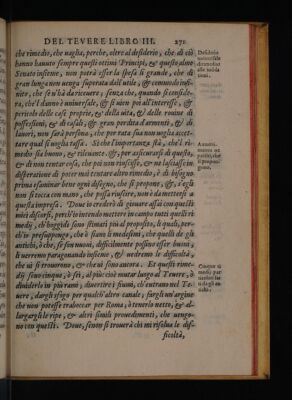 DEL TEVERE LIBRO III. 271
che rimedio, che uaglia, perche, oltre al desiderio, che di ciò
hanno hauuto sempre questi ottimi Principi, & questo almo
Senato insieme, non potrà esser la spesa sì grande, che di
gran lunga non uenga superata dall'utile, & commodo infi-
nito, che se n'hà da riceuere; senza che, quando si conside-
ra, che'l danno è uniuersale, & si uien poi all'interesse, &
pericolo delle case proprie, & della uita, & delle rouine di
possessioni, & di casali, & gran perdita d'armenti, & di
lauori, non sarà persona, che per rata sua non uoglia accet-
tare qual si uoglia tassa. Sì che l'importanza stà, che'l ri-
medio sia buono, & riuscente, & per assicurarsi di questo,
& di non tentar cosa, che poi non riuscisse, & ne lasciasse in
disperatione di poter mai tentare altro rimedio, è di bisogno
prima esaminar bene ogni disegno, che si propone, & s'egli
non si tocca con mano, che possa riuscire, non è da mettersi a
questa impresa. Doue io crederò di giouare assai con questi
miei discorsi, perch'io intendo mettere in campo tutti quelli ri
medij, ch'hoggidì sono stimati più al proposito, li quali, per-
ch'io presuppongo, che ò siano li medesimi, che quelli de gli
antichi, ò che, se son nuoui, difficilmente possino esser buoni,
li uerremo paragonando insieme, & uedremo le difficultà,
che ui si trouorono, & che ui sono ancora. Et questi rime-
dij sono cinque, ò sei, al più: cioè mutar luogo al Teuere, ò
diuiderlo in più rami, diuertire i fiumi, ch'entrano nel Te-
uere, dargli sfogo per qualch'altro canale, fargli un'argine
che non potesse traboccar per Roma, ò tenerlo netto, & al-
largargli le ripe, & altri simili prouedimenti, che uengo-
no con questi. Doue, se non si trouerà chi mi risolua le dif-
ficultà,
Desiderio
uniuersale
di rimediar
alle inōda
tioni.
Cinque ri
medij par
ticolari so-